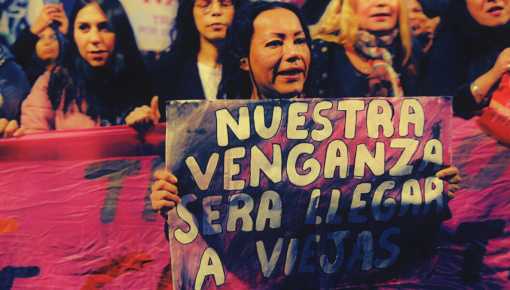 NUESTRA
VENGANZA
SERA LLEGAR
A VIEJAS